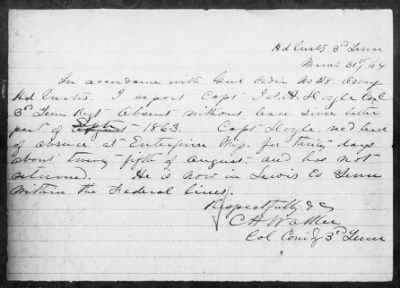 Hd Qurts 3d Tenn
March 31st / 64
In accordance with Genl Order No 28. Army
Hd Qurtrs. I report Capt J. W. A.
3d Tenn Regt Absent without leave since later
part of Sept 1863. Capt recd leave
of absence at Enterprise Miss. for thirty days
about twenty-fifth of August and has not
returned. He is now in Lewis Co Tenn
within the Federal lines.
Respectfully &c
C H Walker
Col Comdg 3d Tenn